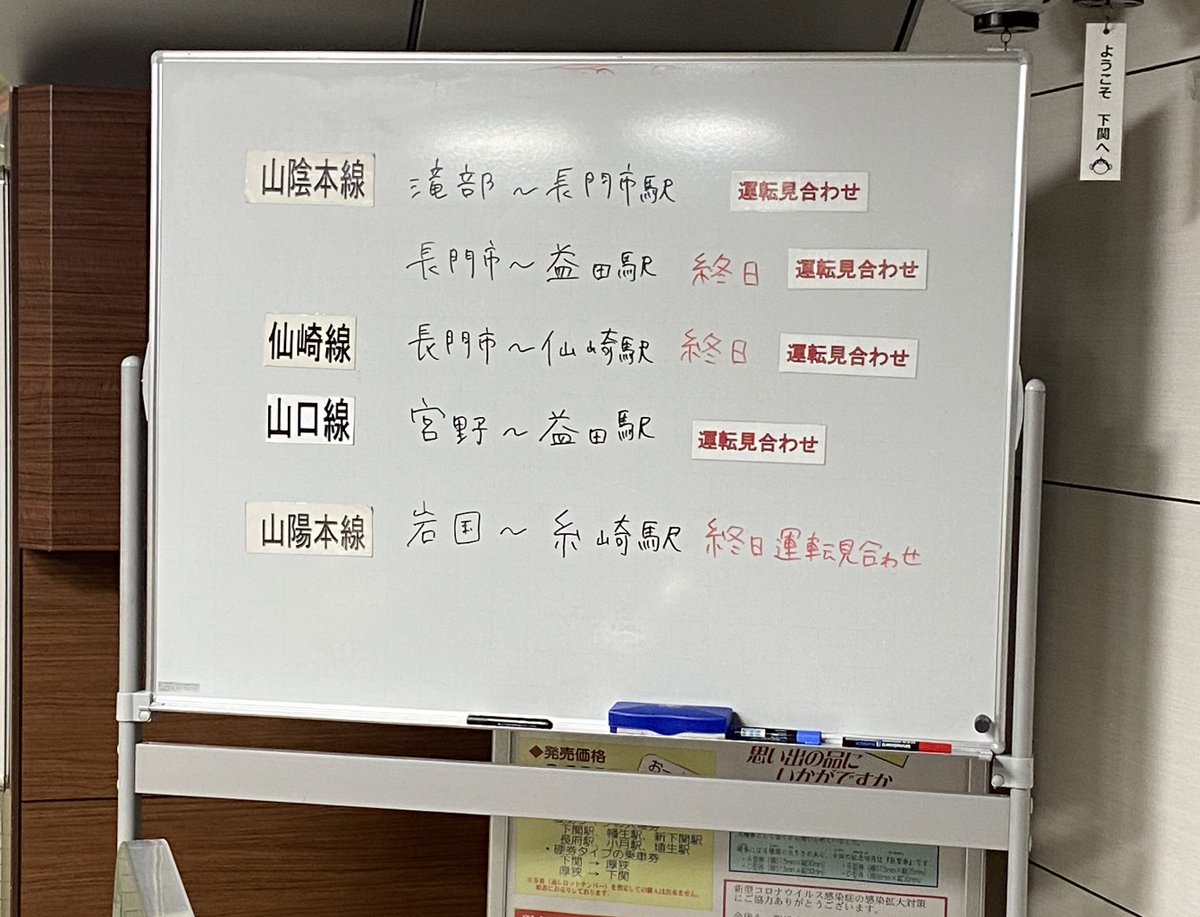 ようこそ 下関へ
山陰本線 滝部～長門市駅 運転見合わせ
長門市～益田駅 終日 運転見合わせ
仙崎線 長門市～仙崎駅 終日 運転見合わせ
山口線 宮野～益田駅 運転見合わせ
山陽本線 岩国～糸崎駅 終日運転見合わせ
◆発売価格
お～
思い出の品に
いかがですか
下関駅、幡生駅、新下関駅
長府駅、小月駅、埴生駅
・硬券タイプの乗車券
下関 → 厚狭
厚狭 → 下関
新型コロナウイルス感染症の感染拡大対策
にご協力ありがとうございます。